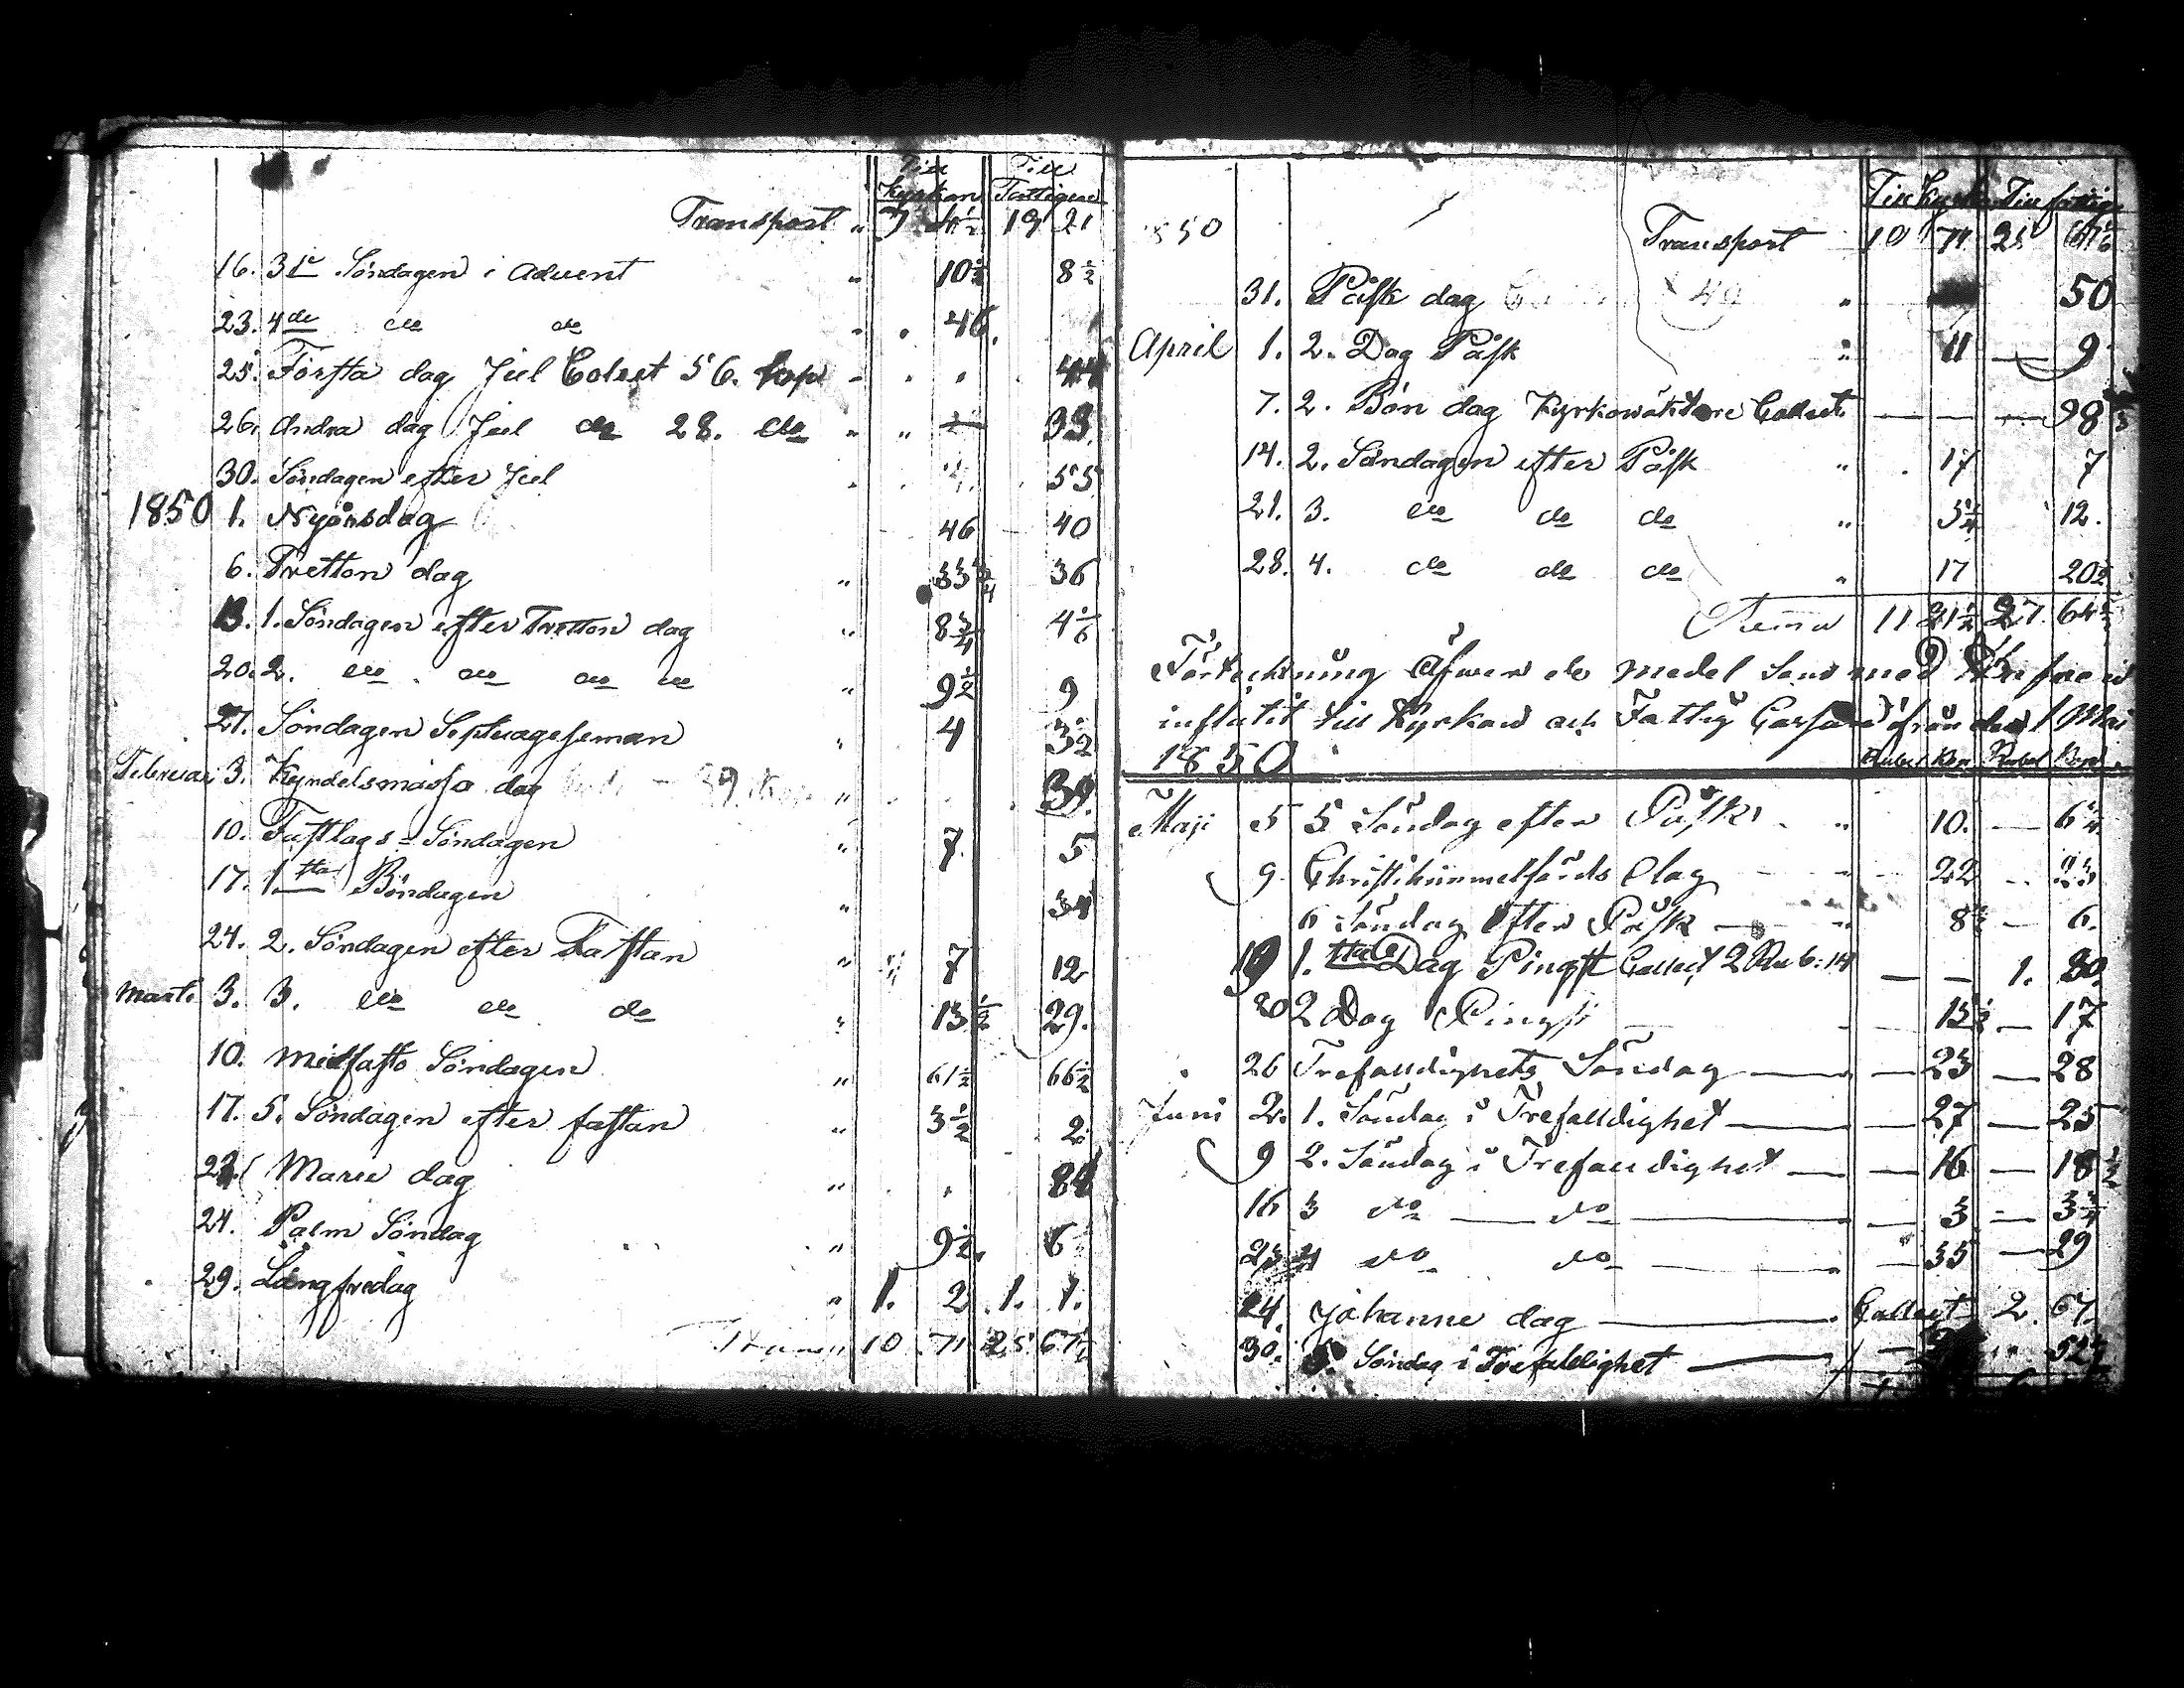 Till Till
Kyrkan Fattigen
Transport " 7 19 21
16. 3die Söndagen i Advent " 10½ 8½
23. 4de do do " 46.
25. Första dag Jul Colect 56. kop 44
26. Andra dag Jul do 28. do " " 33.
30. Söndagen efter Jul 55
1850 1. Nyårsdag 46 40
6. Tretton dag " 33¾ 36
13. 1. Söndagen efter Tretton dag " 8¾ 4⅙
20. 2. do do do do " 9½ 9
27. Söndagen Septuageseman " 4 3½
Februari 3. Kyndelsmässo dag 39 Kop " 39.
10. Fastlags-Söndagen " 7. 5
17. 1sta Böndagen " 34
24. 2. Söndagen efter Fastan " 7 12
Marti 3. 3. do do do " 13½ 29.
10. Midfasto Söndagen " 61½ 66½
17. 5. Söndagen efter fastan " 3½ 2.
Marie dag " 84
24. Palm Söndag " 9½ 6
29. Långfredag " 1. 2 1. 1.
Summa 10 71 25 67⅙
Till Kyrkan Till fattig
1850 Transport 10 71 25 67⅙
31. Påsk dag " 50
April 1. 2. Dag Påsk " 11 — 9
7. 2. Bön dag Kyrkowäktare Collect — — — 98
14. 2. Söndagen efter Påsk " 17 7
21. 3. do do do " 5¼ 12.
28. 4. do do do " 17 20½
Summa 11 21½ 27. 64
Förtekning Äfwer de medel som med
influtit till Kyrkan och Fattig Cassan från den 1 Mai
1850 Rubel Kop Rubel Kop
Maji 5 5 Söndag efter Påsk " 10. — 6¼
9. Christihimmelsfärds dag 22 23
6 Söndag efter Påsk — 8½ — 6.
19 1.sta Dag Pingst Collect 2 Rub: 14 — — 1. 80.
20 2 Dag Pingst 13½ — 17
26 Trefalldighets Söndag — — 23 — 28
Juni 2. 1. Söndag i Trefalldighet — — 27 — 25
9 2. Söndag i Trefalldighet — — 16 — 18½
16 3 do — do — — 3 — 3¼
23 4 do do — 35 — 29
24. Johanne dag — Collect 2. 67.
30. 5 Söndag i Trefaldighet —